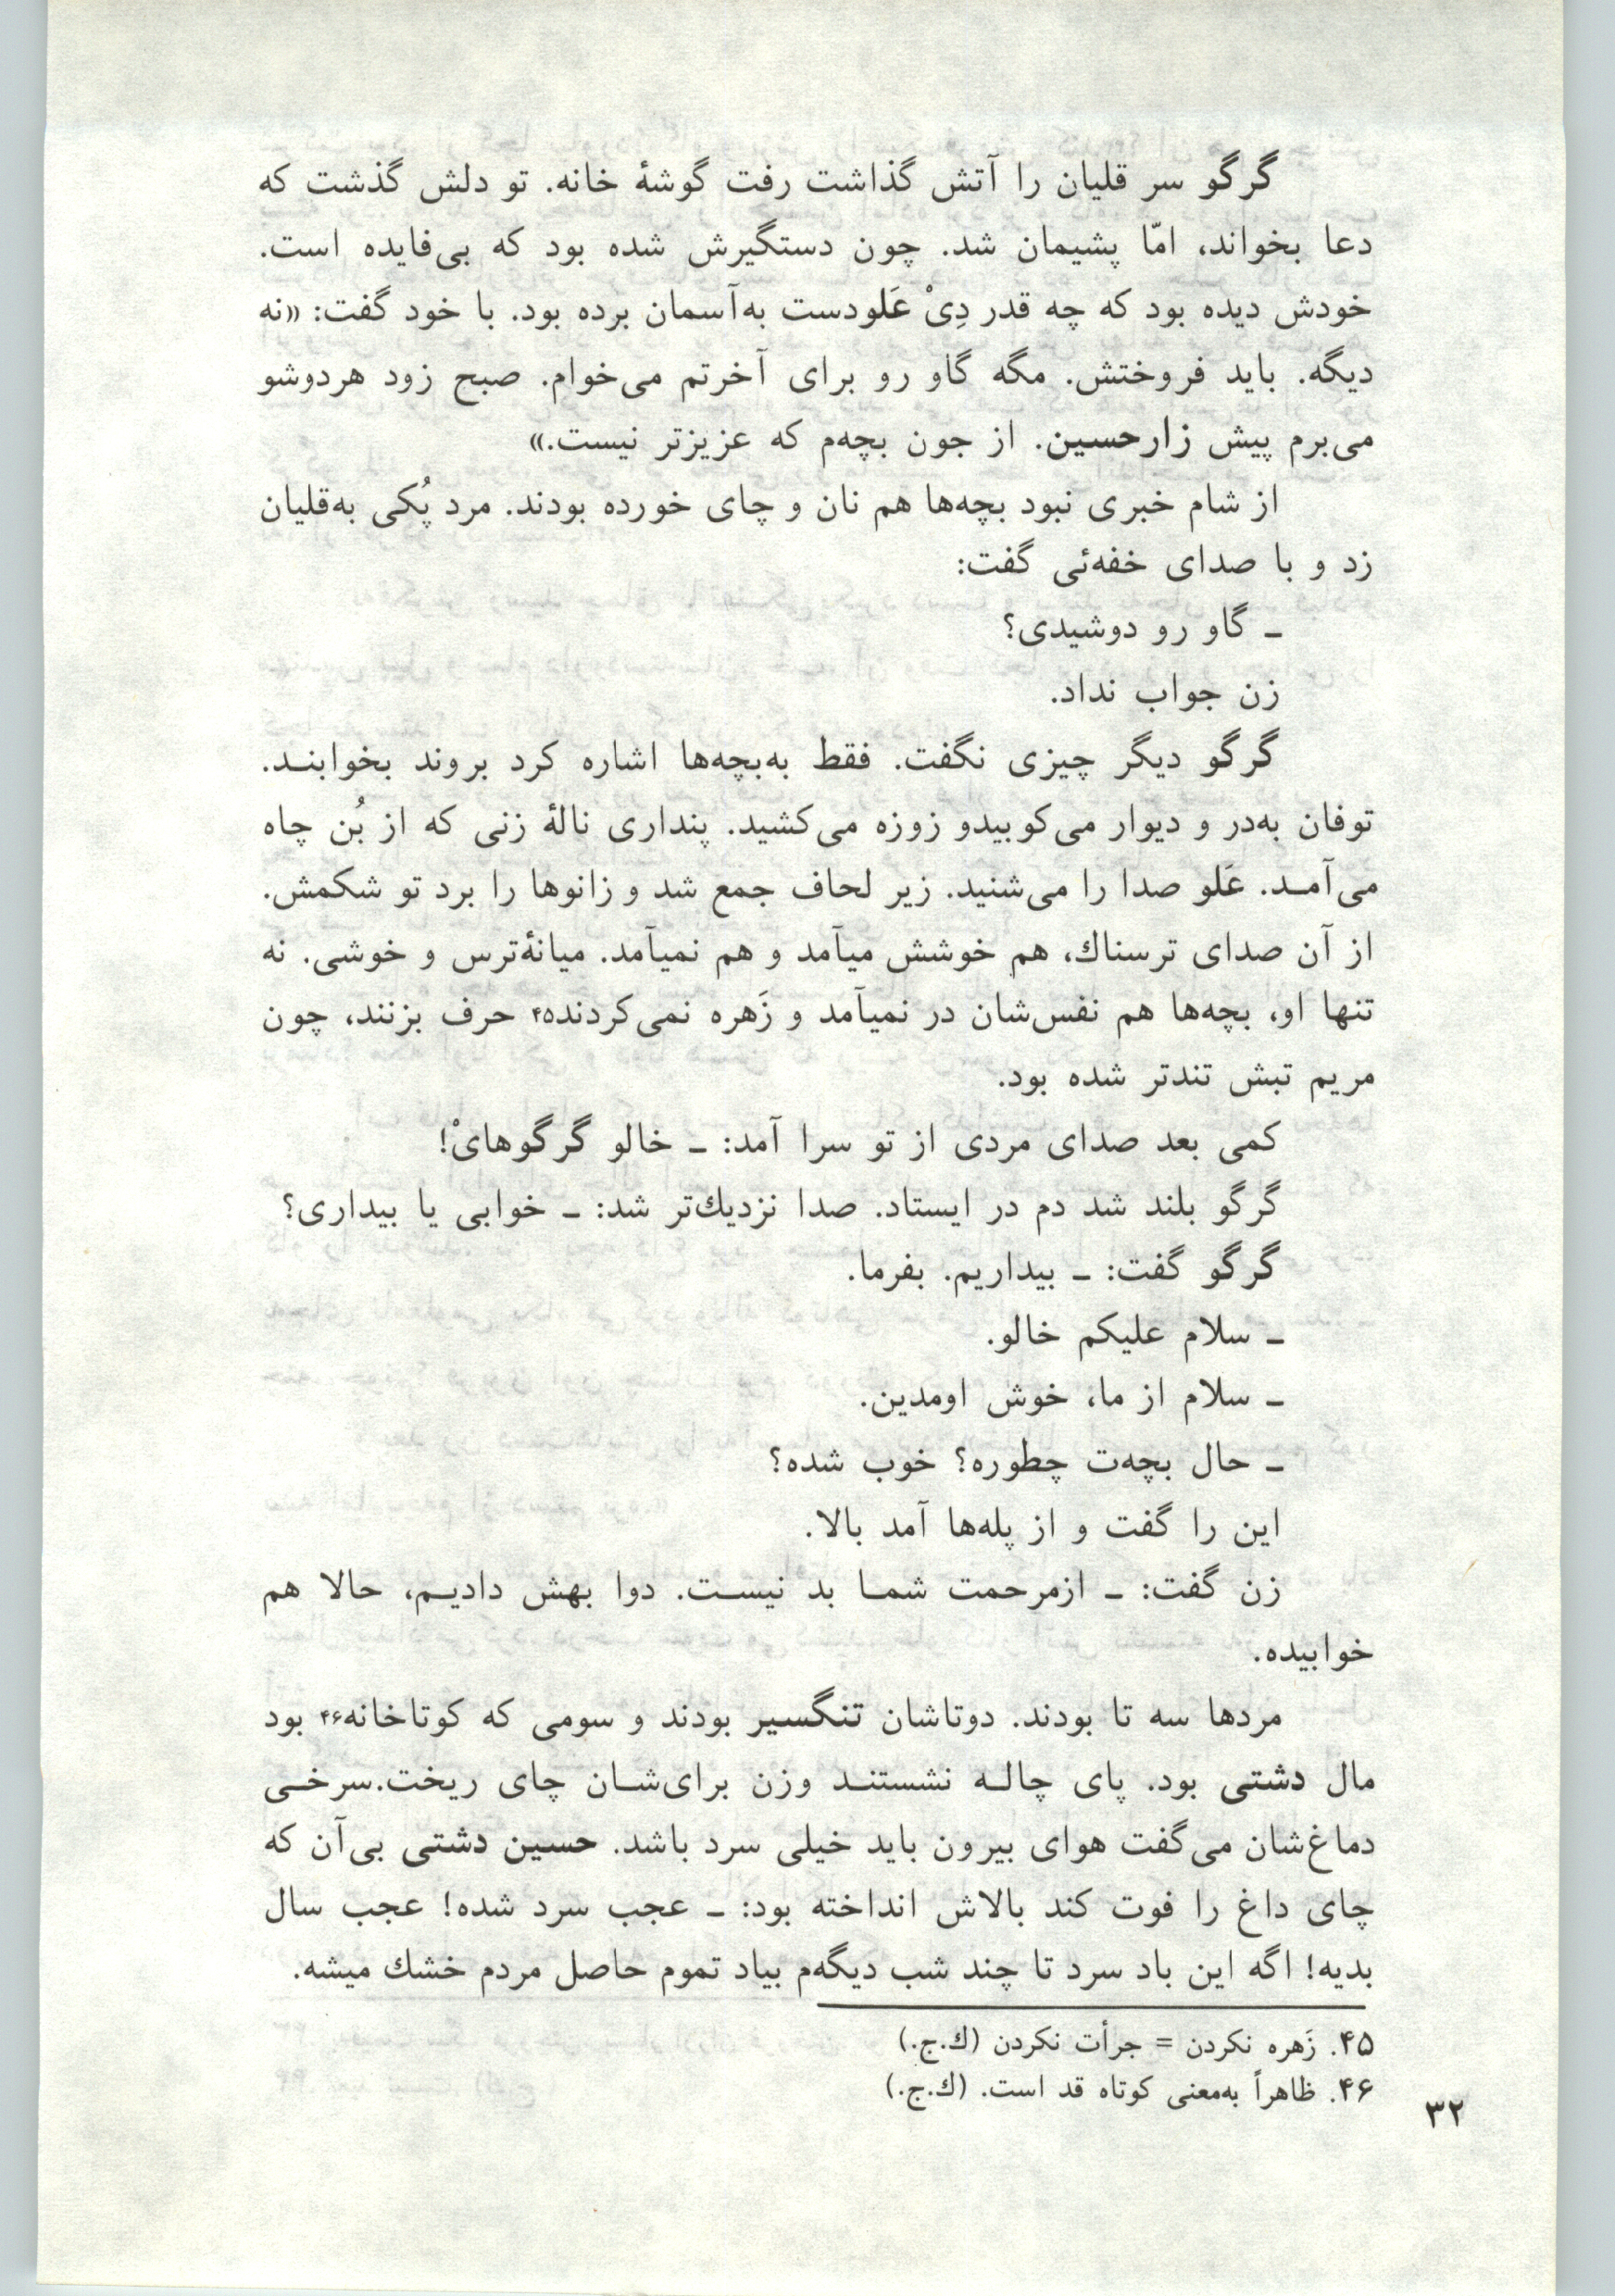 گرگو سر قلیان را آتش گذاشت رفت گوشهٔ خانه. تو دلش گذشت که
دعا بخواند، امّا پشیمان شد. چون دستگیرش شده بود که بی‌فایده است.
خودش دیده بود که چه قدر دِیْ عَلودست به‌آسمان برده بود. با خود گفت: «نه
دیگه. باید فروختش. مگه گاو رو برای آخرتم می‌خوام. صبح زود هردوشو
می‌برم پیش زارحسین. از جون بچه‌م که عزیزتر نیست.»
از شام خبری نبود بچه‌ها هم نان و چای خورده بودند. مرد پُکی به‌قلیان
زد و با صدای خفه‌ئی گفت:
ـ گاو رو دوشیدی؟
زن جواب نداد.
گرگو دیگر چیزی نگفت. فقط به‌بچه‌ها اشاره کرد بروند بخوابنـد.
توفان به‌در و دیوار می‌کوبیدو زوزه می‌کشید. پنداری نالهٔ زنی که از بُن چاه
می‌آمـد. عَلو صدا را می‌شنید. زیر لحاف جمع شد و زانوها را برد تو شکمش.
از آن صدای ترسناك، هم خوشش میآمد و هم نمیآمد. میانهٔ‌ترس و خوشی. نه
تنها او، بچه‌ها هم نفس‌شان در نمیآمد و زَهره نمی‌کردند۴۵ حرف بزنند، چون
مریم تبش تندتر شده بود.
کمی بعد صدای مردی از تو سرا آمد: ـ خالو گرگوهایْ!
گرگو بلند شد دم در ایستاد. صدا نزدیك‌تر شد: ـ خوابی یا بیداری؟
گرگو گفت: ـ بیداریم. بفرما.
ـ سلام علیکم خالو.
ـ سلام از ما، خوش اومدین.
ـ حال بچه‌ت چطوره؟ خوب شده؟
این را گفت و از پله‌ها آمد بالا.
زن گفت: ـ ازمرحمت شمـا بد نیسـت. دوا بهش دادیـم، حالا هم
خوابیده.
مردها سه تا بودند. دوتاشان تنگسیر بودند و سومی که کوتاخانه۴۶ بود
مال دشتی بود. پای چالـه نشستنـد وزن برای‌شـان چای ریخت.سرخـی
دماغ‌شان می‌گفت هوای بیرون باید خیلی سرد باشد. حسین دشتی بی‌آن که
چای داغ را فوت کند بالاش انداخته بود: ـ عجب سرد شده! عجب سال
بدیه! اگه این باد سرد تا چند شب دیگه‌م بیاد تموم حاصل مردم خشك میشه.
۴۵. زَهره نکردن = جرأت نکردن (ك.ج.)
۴۶. ظاهراً به‌معنی کوتاه قد است. (ك.ج.)
۳۲